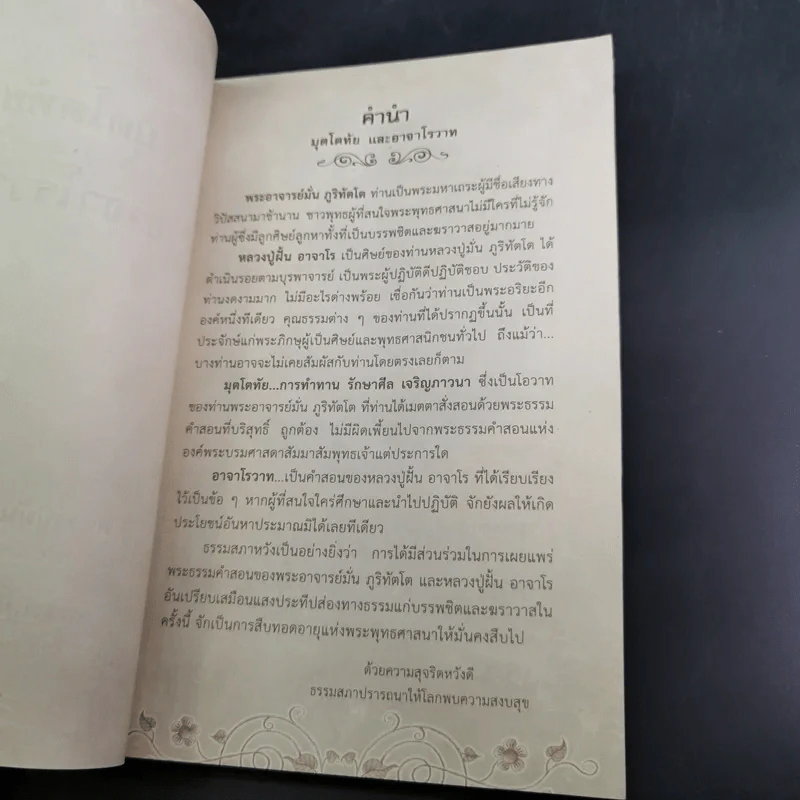 คำนำ
มุตโตทัย และอาจาโรวาท
พระอาจารย์มั่น ภูริทัตโต ท่านเป็นพระมหาเถระผู้มีชื่อเสียงทาง
วิปัสสนามาช้านาน ชาวพุทธผู้ที่สนใจพระพุทธศาสนาไม่มีใครที่ไม่รู้จัก
ท่านผู้ซึ่งมีลูกศิษย์ลูกหาทั้งที่เป็นบรรพชิตและฆราวาสอยู่มากมาย
หลวงปู่ฝั้น อาจาโร เป็นศิษย์ของท่านหลวงปู่มั่น ภูริทัตโต ได้
ดำเนินรอยตามบุรพาจารย์ เป็นพระผู้ปฏิบัติดีปฏิบัติชอบ ประวัติของ
ท่านงดงามมาก ไม่มีอะไรด่างพร้อย เชื่อกันว่าท่านเป็นพระอริยะอีก
องค์หนึ่งทีเดียว คุณธรรมต่าง ๆ ของท่านที่ได้ปรากฏขึ้นนั้น เป็นที่
ประจักษ์แก่พระภิกษุผู้เป็นศิษย์และพุทธศาสนิกชนทั่วไป ถึงแม้ว่า...
บางท่านอาจจะไม่เคยสัมผัสกับท่านโดยตรงเลยก็ตาม
มุตโตทัย...การทำทาน รักษาศีล เจริญภาวนา ซึ่งเป็นโอวาท
ของท่านพระอาจารย์มั่น ภูริทัตโต ที่ท่านได้เมตตาสั่งสอนด้วยพระธรรม
คำสอนที่บริสุทธิ์ ถูกต้อง ไม่มีผิดเพี้ยนไปจากพระธรรมคำสอนแห่ง
องค์พระบรมศาสดาสัมมาสัมพุทธเจ้าแต่ประการใด
อาจาโรวาท...เป็นคำสอนของหลวงปู่ฝั้น อาจาโร ที่ได้เรียบเรียง
ไว้เป็นข้อ ๆ หากผู้ที่สนใจใคร่ศึกษาและนำไปปฏิบัติ จักยังผลให้เกิด
ประโยชน์อันหาประมาณมิได้เลยทีเดียว
ธรรมสภาหวังเป็นอย่างยิ่งว่า การได้มีส่วนร่วมในการเผยแพร่
พระธรรมคำสอนของพระอาจารย์มั่น ภูริทัตโต และหลวงปู่ฝั้น อาจาโร
อันเปรียบเสมือนแสงประทีปส่องทางธรรมแก่บรรพชิตและฆราวาสใน
ครั้งนี้ จักเป็นการสืบทอดอายุแห่งพระพุทธศาสนาให้มั่นคงสืบไป
ด้วยความสุจริตหวังดี
ธรรมสภาปรารถนาให้โลกพบความสงบสุข